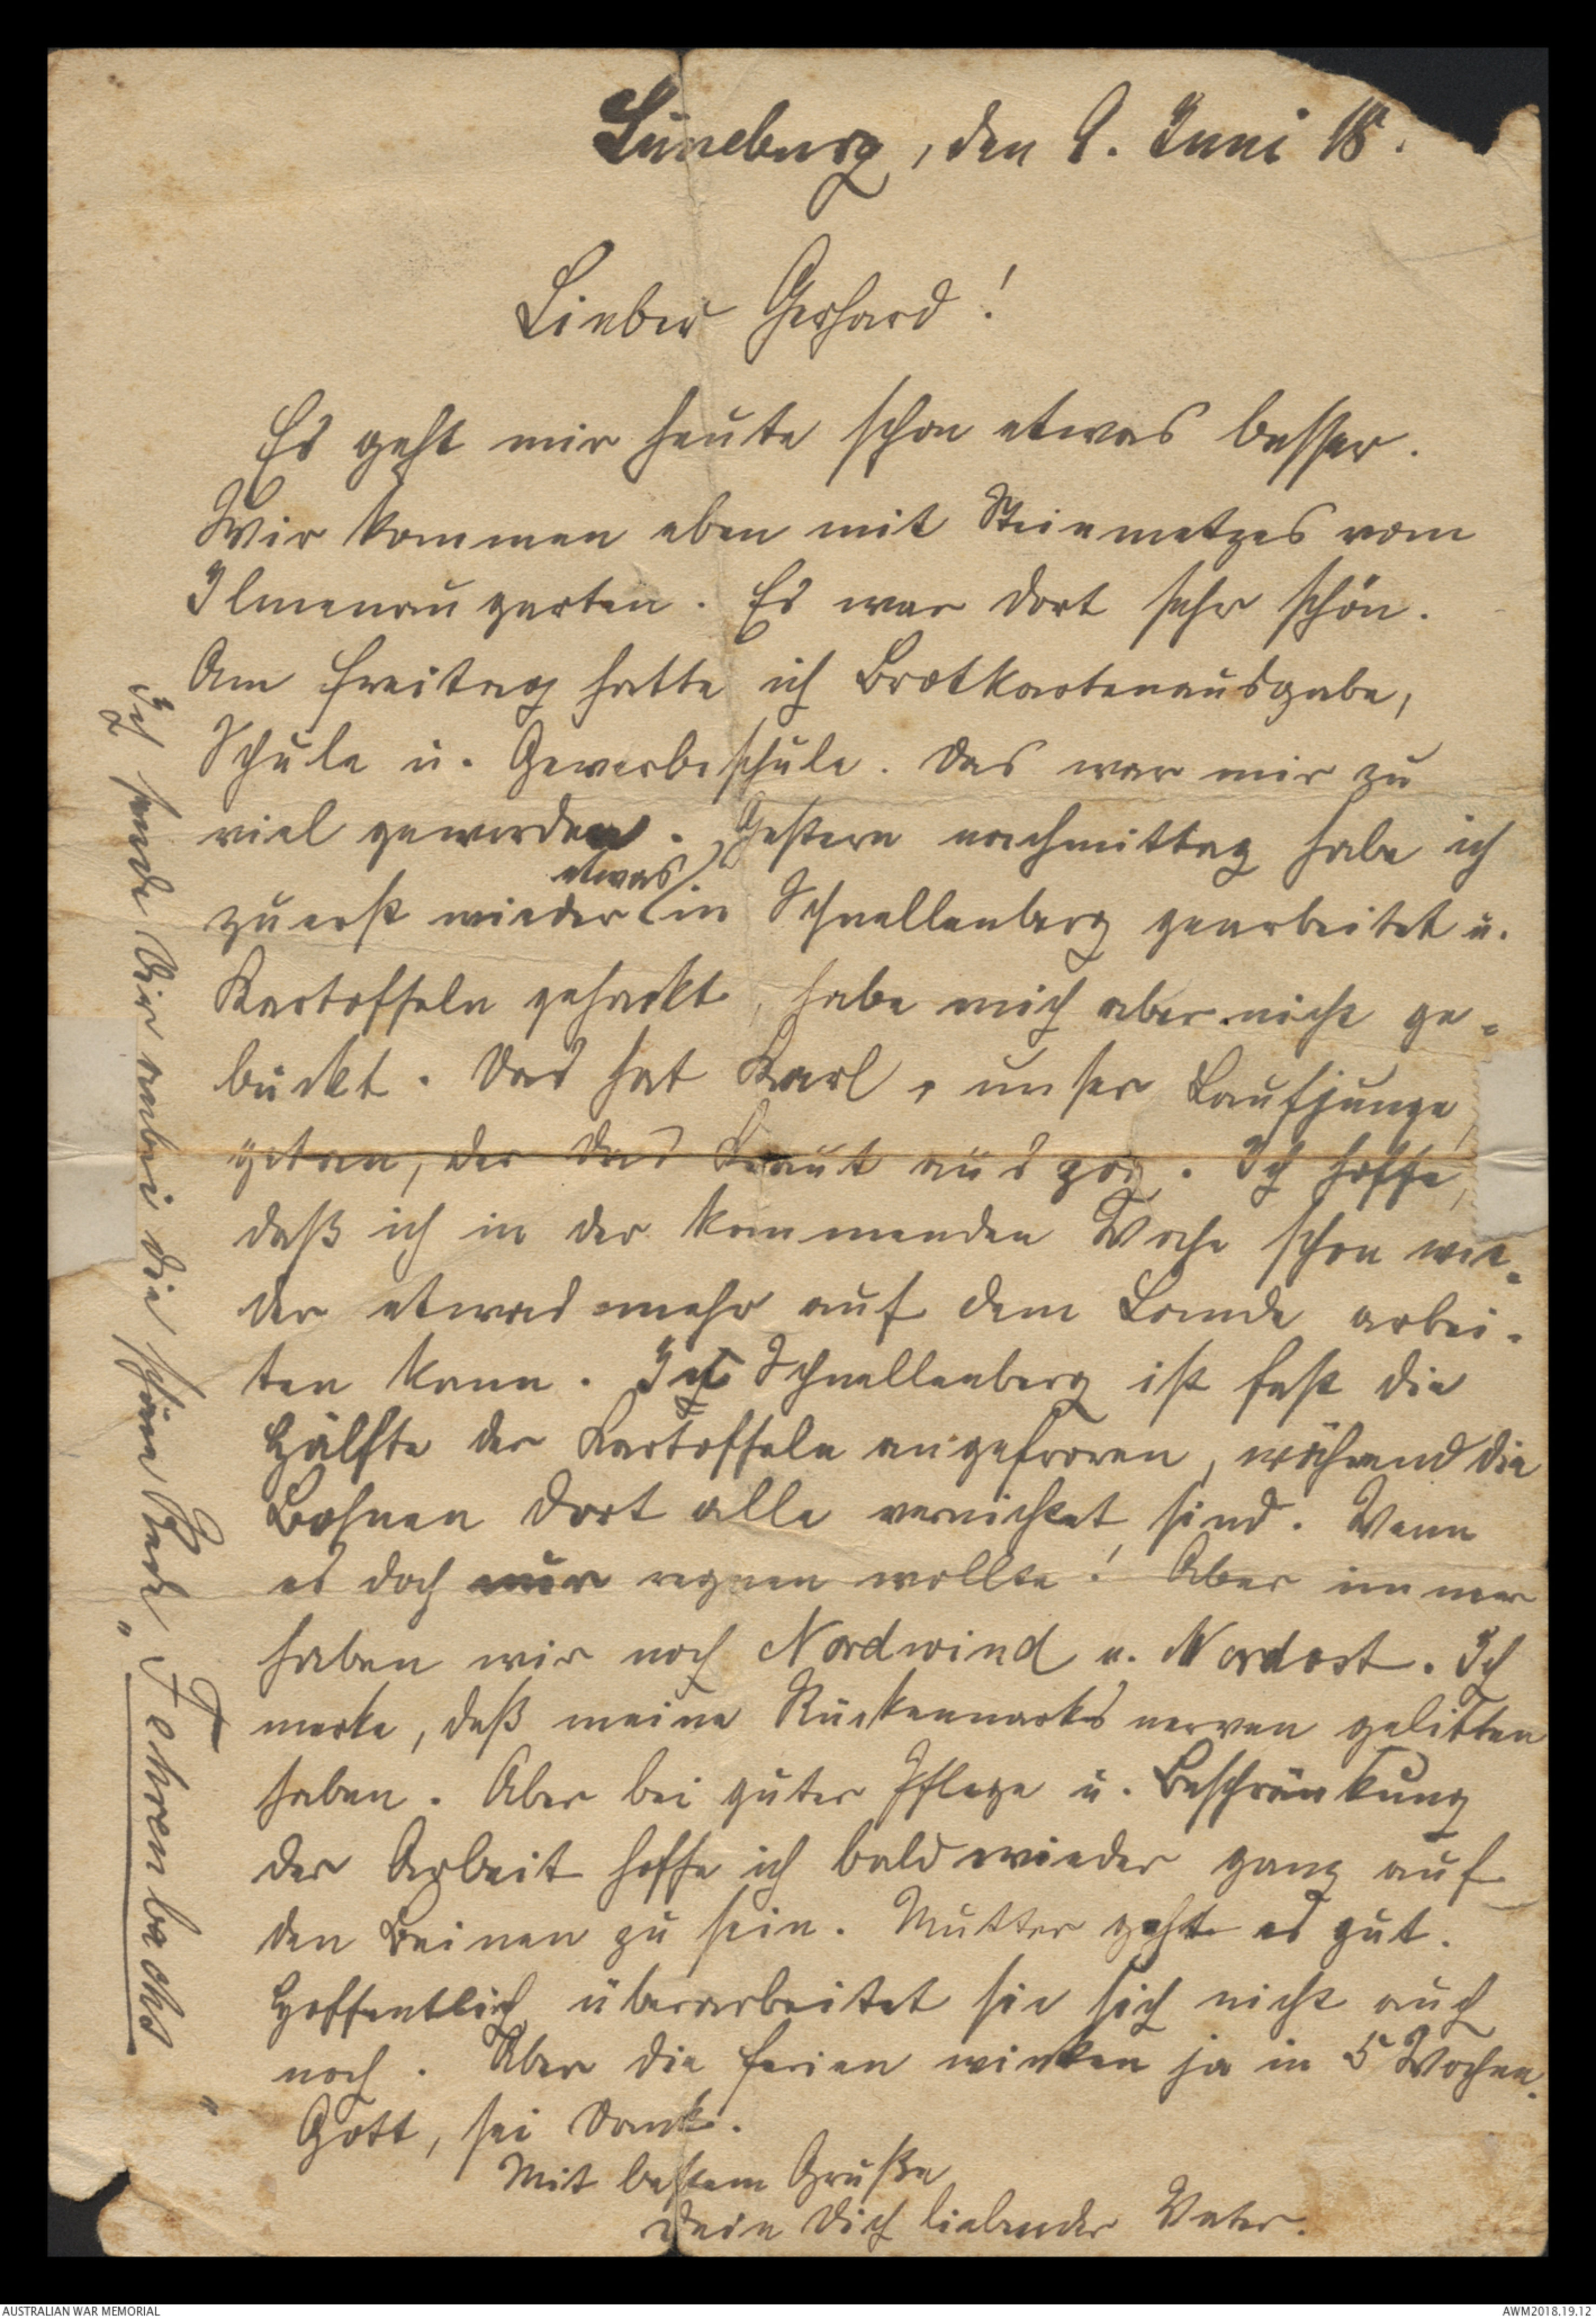 Lüneburg, den 9. Juni 18.
Lieber Gerhard!
Es geht mir heute schon etwas besser.
Wir kommen eben mit Steinmetzes vom
Ilmenaugarten. Es war dort sehr schön.
Am Freitag hatte ich Brotkartenausgabe,
Schule u. Gewerbeschule. Das war mir zu
viel geworden. Gestern nachmittag habe ich
zuerst wieder etwas in Schnellenberg gearbeitet u.
Kartoffeln gehackt, habe mich aber nicht ge-
bückt. Das hat Karl, unser Laufjunge,
getan, der das Kraut auszog. Ich hoffe,
daß ich in der kommenden Woche schon wie-
der etwas mehr auf dem Lande arbei-
ten kann. In Schnellenberg ist fast die
Hälfte der Kartoffeln angefroren, während die
Bohnen dort alle vernichtet sind. Wenn
es doch nur regnen wollte! Aber immer
haben wir noch Nordwind u. Nordost. Ich
merke, daß meine Rückenmarksnerven gelitten
haben. Aber bei guter Pflege u. Beschränkung
der Arbeit hoffe ich bald wieder ganz auf
den Beinen zu sein. Mutter geht es gut.
Hoffentlich überarbeitet sie sich nicht auch
noch. Aber die Ferien winken ja in 5 Wochen.
Gott, sei Dank.
Mit bestem Gruße
Dein Dich liebender Vater.
Ich sende Dir anbei die schöne „Fehrenbachs"
AUSTRALIAN WAR MEMORIAL
AWM2018.19.12